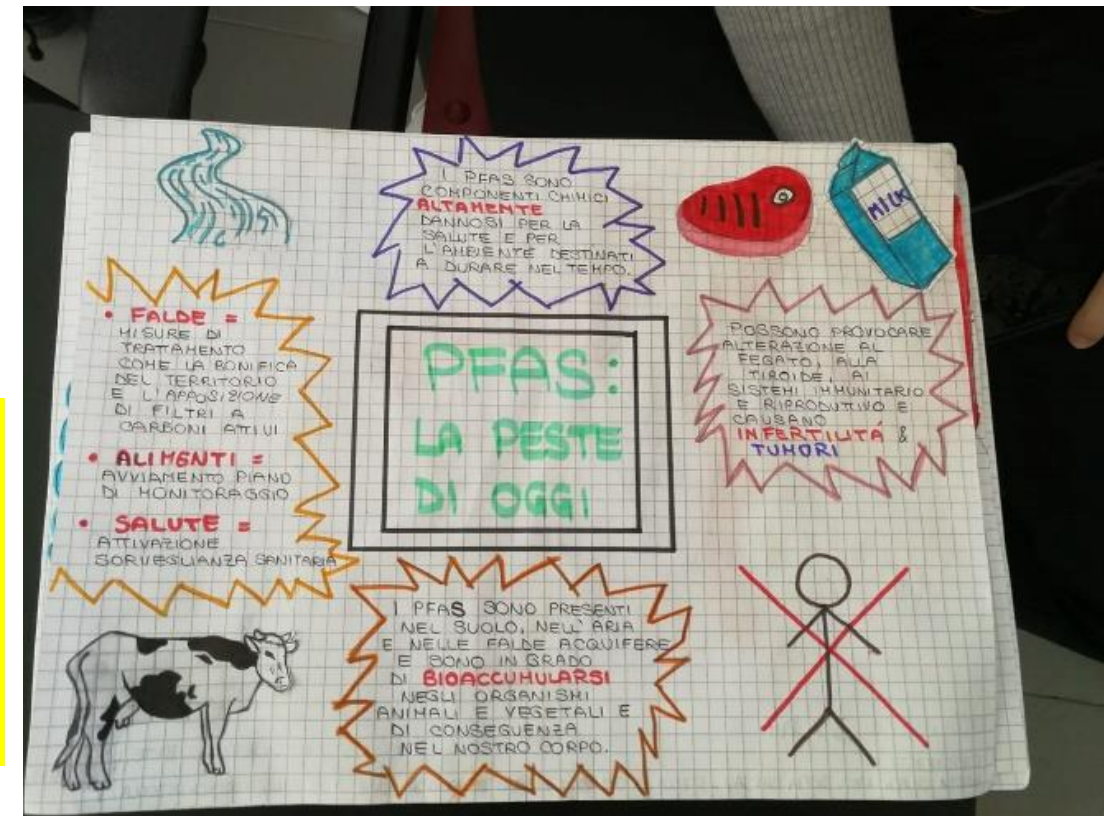 I PFAS SONO
COMPONENTI CHIMICI
ALTAMENTE
DANNOSI PER LA
SALUTE E PER
L'AMBIENTE DESTINATI
A DURARE NEL TEMPO.
MILK
• FALDE =
MISURE DI
TRATTAMENTO
COME LA BONIFICA
DEL TERRITORIO
E L'APPOSIZIONE
DI FILTRI A
CARBONI ATTIVI
• ALIMENTI =
AVVIAMENTO PIANO
DI MONITORAGGIO
• SALUTE =
ATTIVAZIONE
SORVEGLIANZA SANITARIA
PFAS:
LA PESTE
DI OGGI
POSSONO PROVOCARE
ALTERAZIONE AL
FEGATO, ALLA
TIROIDE, AI
SISTEMI IMMUNITARIO
E RIPRODUTIVO E
CAUSANO
INFERTILITÁ &
TUMORI
I PFAS SONO PRESENTI
NEL SUOLO, NELL'ARIA
E NELLE FALDE ACQUIFERE
E SONO IN GRADO
DI BIOACCUMULARSI
NEGLI ORGANISMI
ANIMALI E VEGETALI E
DI CONSEGUENZA
NEL NOSTRO CORPO.